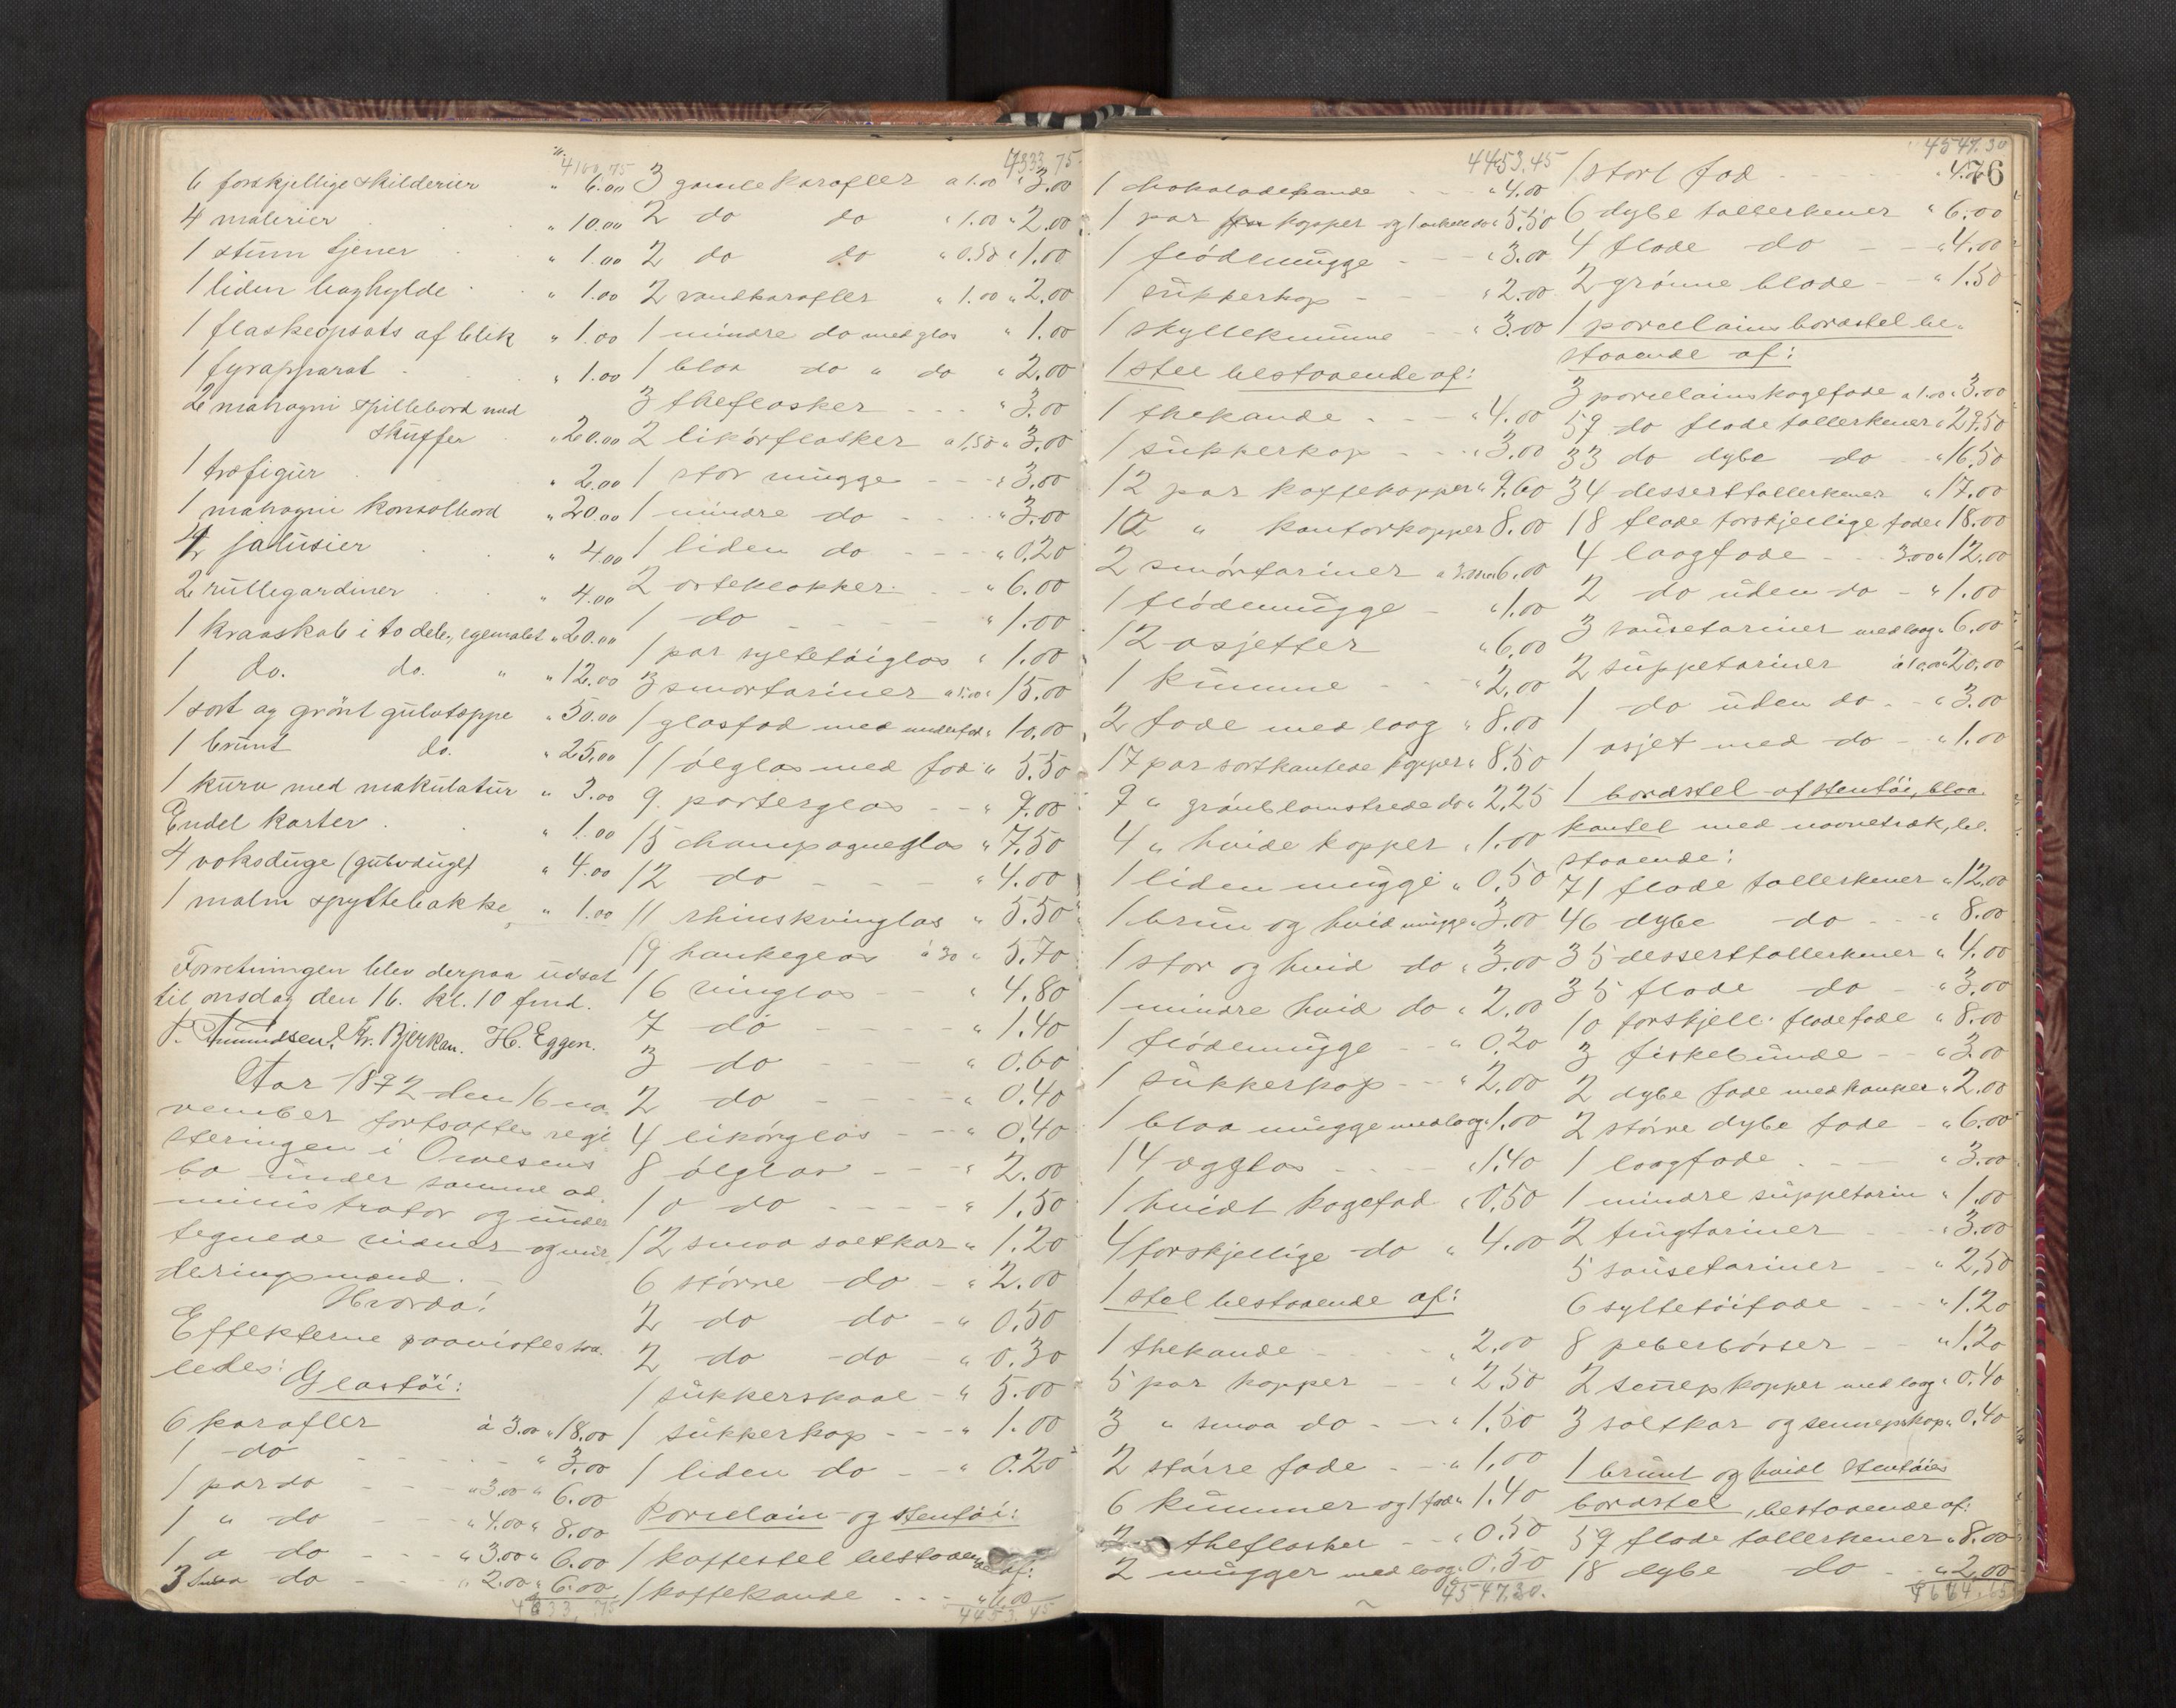 4160,75
6 forskjellige skilderier " 6.00
4 malerier " 10.00
1 stum tjener " 1.00
1 liden boghylde " 1.00
1 flaskeopsats af blik " 1.00
1 fyrapparat " 1.00
2 mahogni spillebord med
skuffer " 20.00
1 træfigur " 2.00
1 mahogni konsolbord " 20.00
4 jalusier " 4.00
2 rullegardiner " 4.00
1 kraaskab i to dele, egemalet " 20.00
1 do. do. " " 12.00
1 sort og grönt gulvtæppe " 50.00
1 brunt do. " 25.00
1 kurv med makulatur " 3.00
Endel karter " 1.00
4 voksduge (gulvduge) " 4.00
1 malm spyttebakke " 1.00
Forretningen blev derpaa udsat
til onsdag den 16. kl. 10 fmd.
Amundsen. Fr. Bjerkan. H. Eggen.
Aar 1892 den 16 no-
vember fortsattes regi
steringen i Owesens
bo under samme ad.
ministrator og under
tegnede vidner og vur
deringsmænd.
Hvorda!
Effekterne paavistes saa.
ledes:
Glastöi:
6 karafler à 3.00 " 18.00
1 do " 3.00
1 par do " 3.00 " 6.00
1 " do " 4.00 " 8.00
1 " do " 3.00 " 6.00
3 smaa do " 2.00 " 6.00
4333,75
4333,75
3 gamle karafler a 1.00 " 3.00
2 do do " 1.00 " 2.00
2 do do " 0.50 " 1.00
2 vandkarafler " 1.00 " 2.00
1 mindre do med glas " 1.00
1 blaa do " do " 2.00
3 theflasker " 3.00
2 likörflasker a 1,50 " 3.00
1 stor mugge " 3.00
1 mindre do " 3.00
1 liden do " 0.20
2 osteklokker " 6.00
1 do " 1.00
1 par syltetöiglas " 1.00
3 smörtariner a 5.00 " 15.00
1 glasfad med underfad " 10.00
11 ölglas med fod " 5.50
9 porterglas " 9.00
15 champagneglas " 7.50
12 do " 4.00
11 rhinskvinglas " 5.50
19 hankeglas à 30 " 5.70
16 vinglas " 4.80
7 do " 1.40
3 do " 0.60
2 do " 0.40
4 likörglas " 0.40
8 ölglas " 2.00
10 do " 1.50
12 smaa saltkar " 1.20
6 större do " 2.00
2 do do " 0.50
2 do do " 0.30
1 sukkerskaal " 5.00
1 sukkerkop " 1.00
1 liden do " 0.20
Porcelain og stentöi:
1 kaffestel bestaaende af:
1 kaffekande " 6.00
4453,45
4453,45
1 chokoladekande " 4.00
1 par kopper og 1 enkelt do " 5.50
1 flödemugge " 3.00
1 sukkerkop " 2.00
1 skyllekumme " 3.00
1 stel bestaaende af:
1 thekande " 4.00
1 sukkerkop " 3.00
12 par kaffekopper " 9.60
10 " kantorkopper 8.00
2 smörtariner a 3.00 " 6.00
1 flödemugge " 1.00
12 asjetter " 6.00
1 kumme " 2.00
2 fade med laag " 8.00
17 par sortkantede kopper " 8.50
9 " grönblomstrede do " 2.25
4 " hvide kopper " 1.00
1 liden mugge " 0.50
1 brun og hvid mugge " 3.00
1 stor og hvid do " 3.00
1 mindre hvid do " 2.00
1 flödemugge " 0.20
1 sukkerkop " 2.00
1 blaa mugge med laag " 1.00
14 ægglas " 1.40
1 hvidt kagefad " 0.50
4 forskjellige do " 4.00
1 stel bestaaende af:
1 thekande " 2.00
5 par kopper " 2.50
3 " smaa do " 1.50
2 större fade " 1.00
6 kummer og 1 fad " 1.40
2 theflasker " 0.50
2 mugger med laag " 0.50
4547,30.
4547.30
76
1 stort fad
6 dybe tallerkener " 6.00
4 flade do " 4.00
2 grönne blade " 1.50
1 porcelains bordstel be-
staaende af:
3 porcelainskagefade a 1.00 " 3.00
59 do flade tallerkener " 29.50
33 do dybe do " 16.50
34 desserttallerkener " 17.00
18 flade forskjellige fade " 18.00
4 laagfade 3.00 " 12.00
2 do uden do " 1.00
3 sausetariner med laag " 6.00
2 suppetariner à 10.00 " 20.00
1 do uden do " 3.00
1 asjet med do " 1.00
1 bordstel af stentöi, blaa-
kantet med navnetræk, be-
staaende:
71 flade tallerkener " 12.00
46 dybe do " 8.00
35 desserttallerkener " 4.00
35 flade do " 3.00
10 forskjell. flade fade " 8.00
3 fiskebunde " 3.00
2 dybe fade med hanker " 2.00
2 större dybe fade " 6.00
1 laagfade " 3.00
1 mindre suppetarin " 1.00
2 frugtariner " 3.00
5 sausetariner " 2,50
6 syltetöifade " 1.20
8 peberbösser " 1.20
2 senepkopper med laag " 0.40
3 saltkar og sennepskop " 0.40
1 brunt og hvidt stentöies
bordstel, bestaaende af:
59 flade tallerkener " 8.00
18 dybe do " 2.00